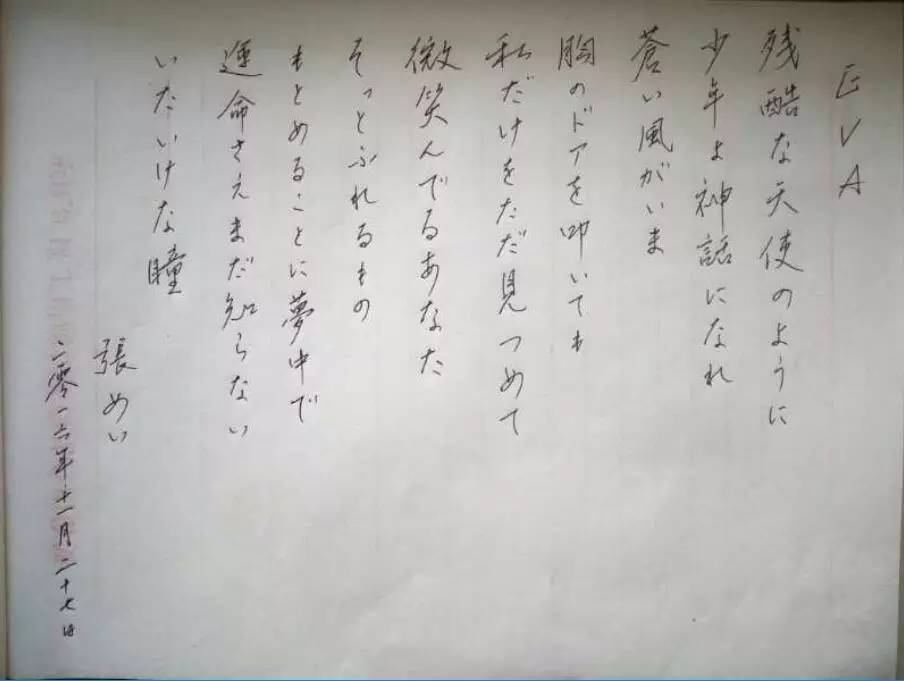 EVA
残酷な天使のように
少年よ神話になれ
蒼い風がいま
胸のドアを叩いても
私だけをただ見つめて
微笑んでるあなた
そっとふれるもの
もとめることに夢中で
運命さえまだ知らない
いたいけな瞳
張めい
二零一六年十一月二十七日